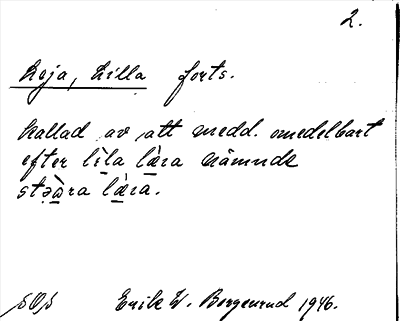 2.
Leja, Lilla forts.
kallad av att medd. omedelbart
efter lìla læ̀ra nämnde
stəɷ̀ra læ̀ra.
SOS Erik W. Borgenrud 1946.